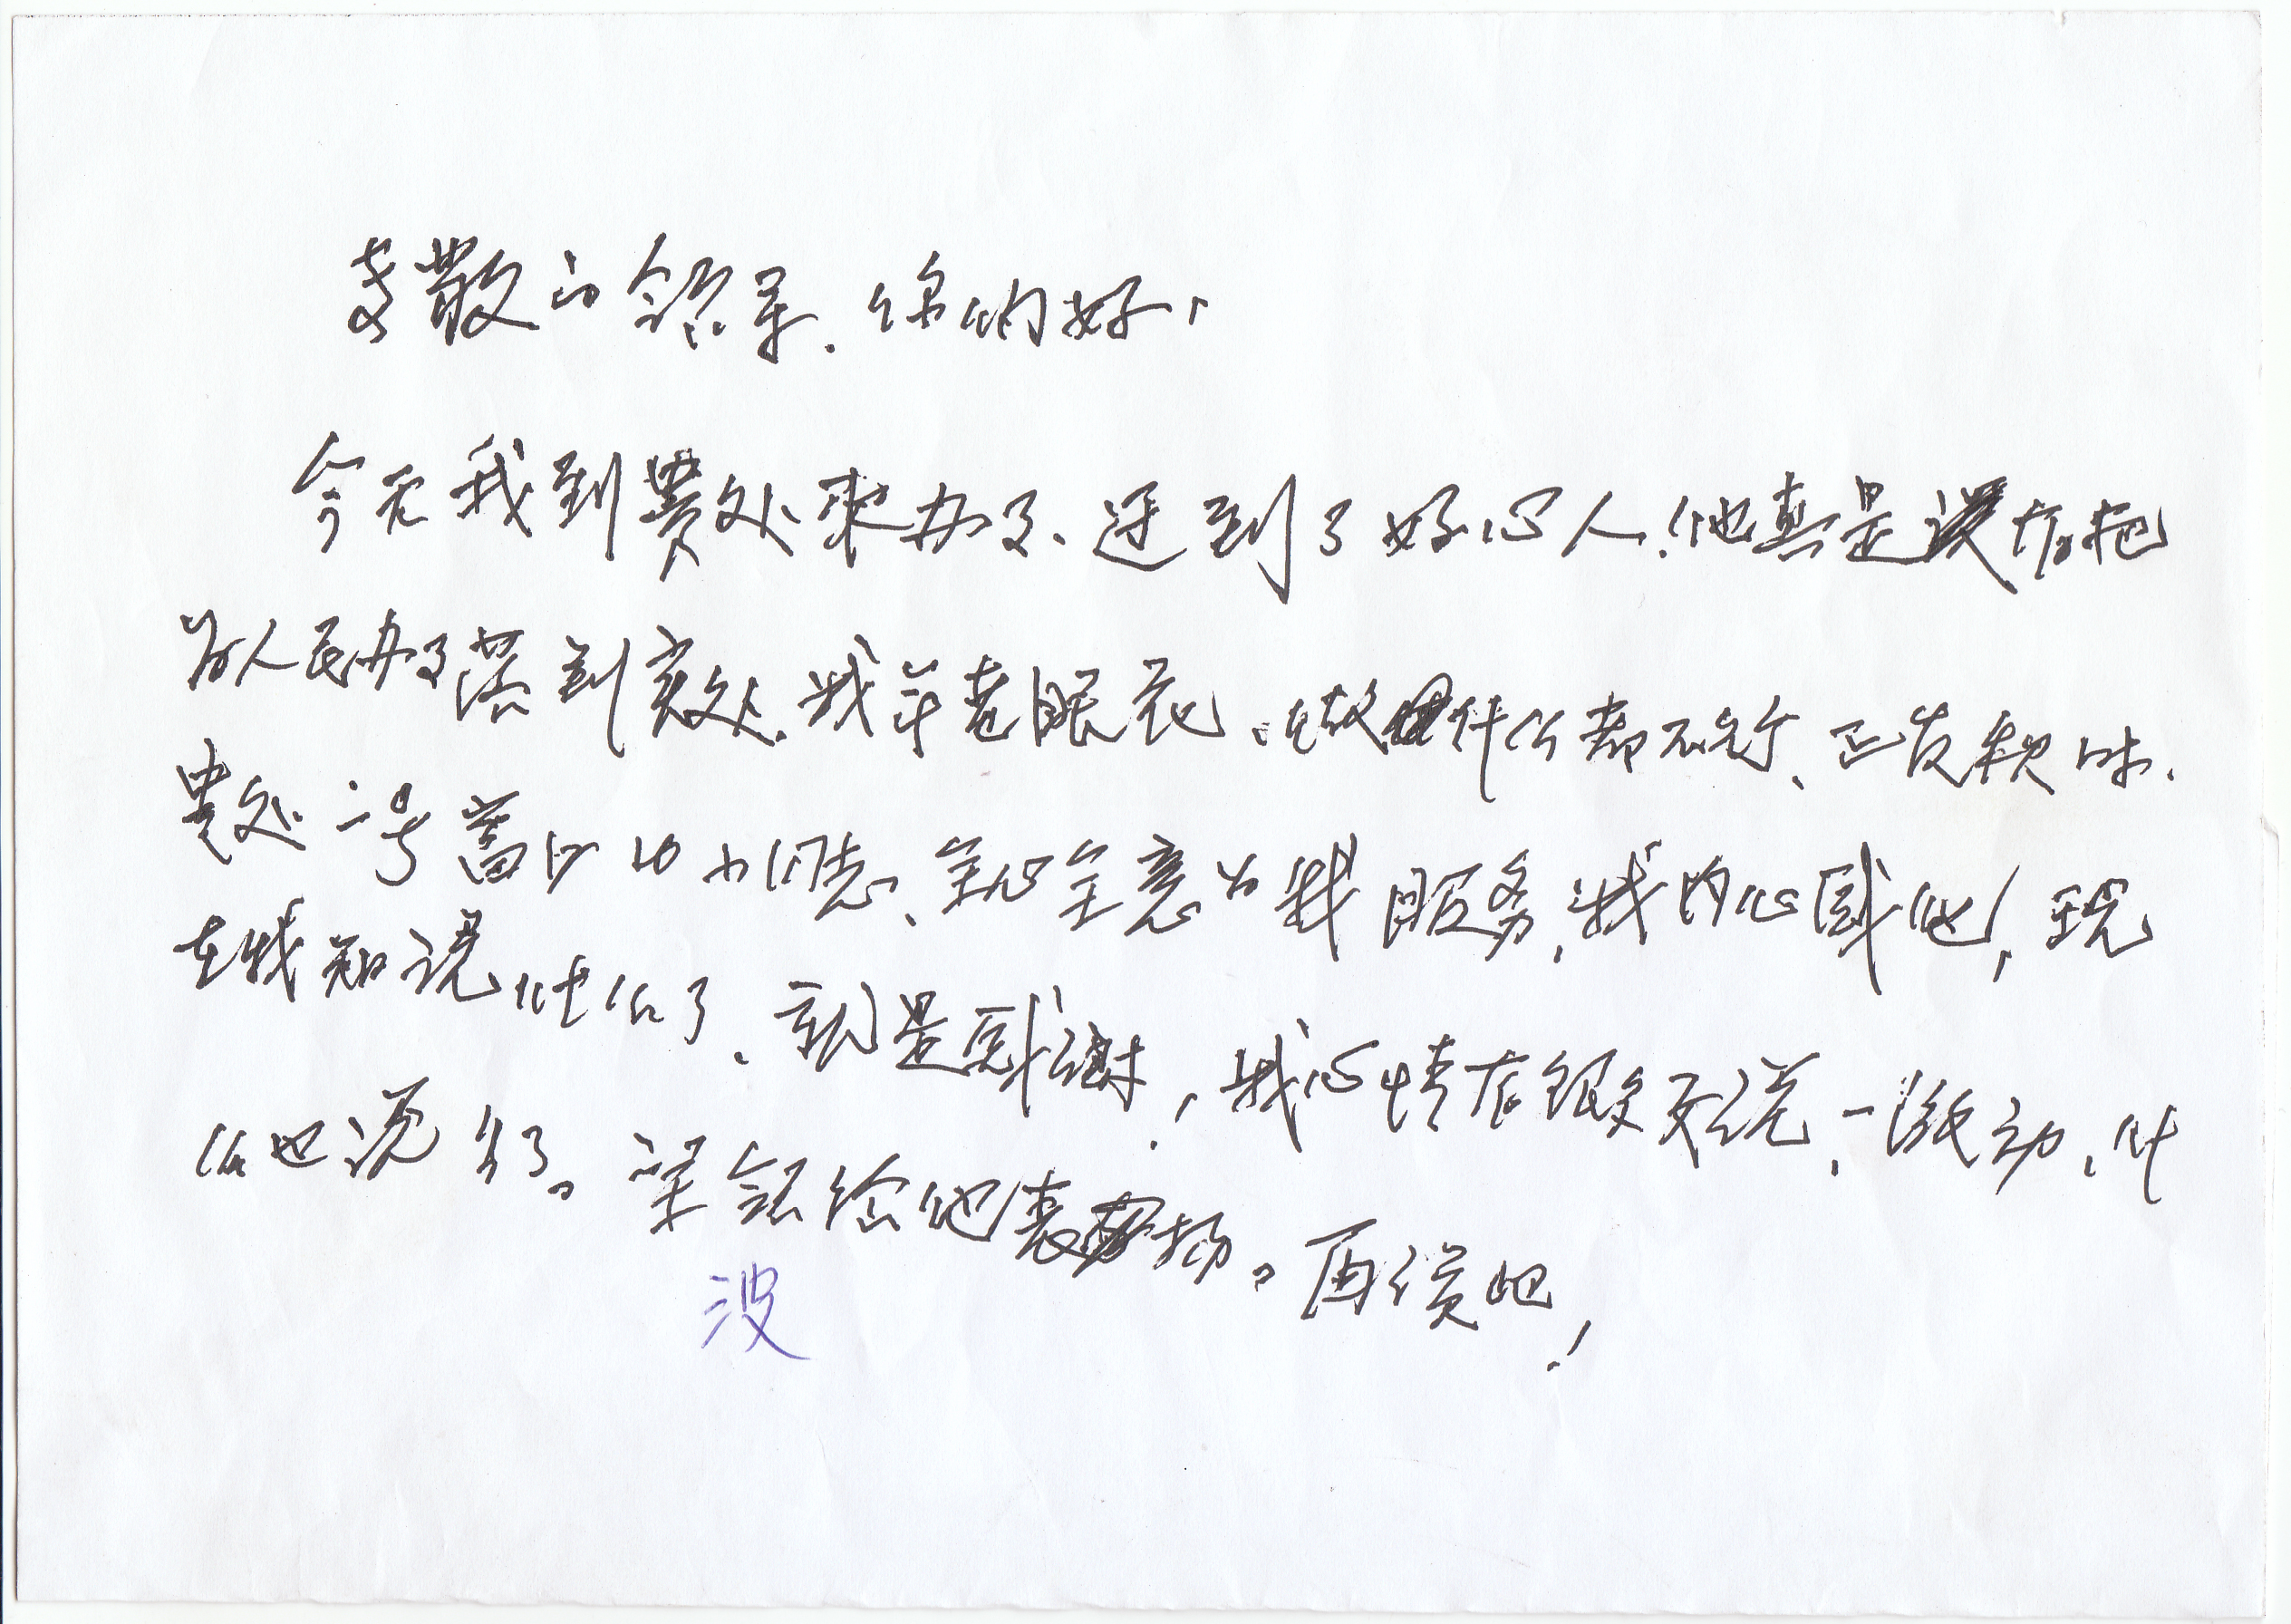 敬的领导.你们好,
今天我到贵处来办了.还到了好心人!他真是没有把
为人民办了落到实处.我年老眼花,做什么都不行、正发愁时.
贵处一号窗口的小同志、全心全意为我服务,我内心感他,现
在我知说什么了、就是感谢!我心情有很多要说,一激动,什
么也说了。望领给他表扬。再续吧!
没